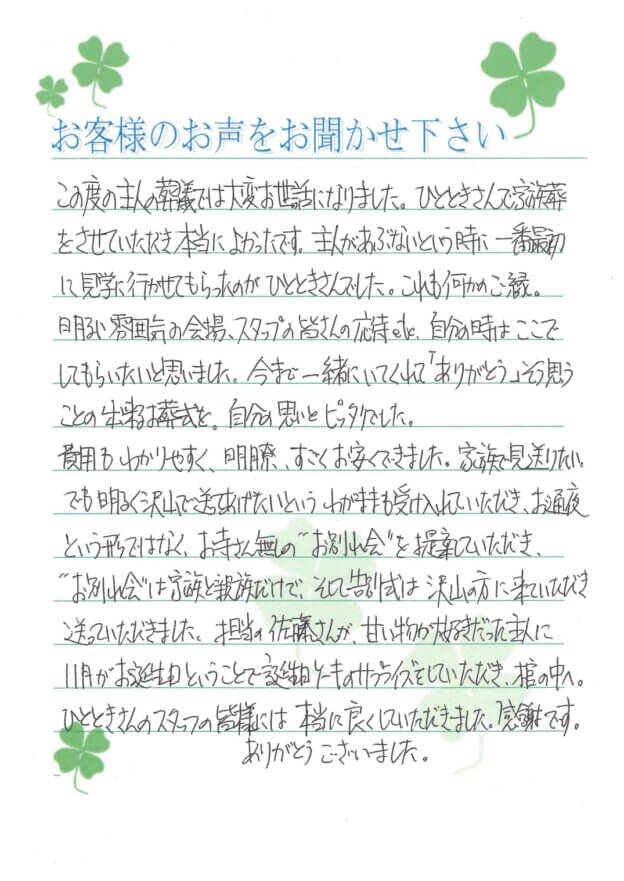 お客様のお声をお聞かせ下さい
この度の主人の葬儀では大変お世話になりました。ひとときさんで家族葬
をさせていただき本当によかったです。主人があぶないという時に一番最初
に見学に行かせてもらったのがひとときさんでした。これも何かのご縁。
明るい雰囲気の会場、スタッフの皆さんの応待etc、自分の時はここで
してもらいたいと思いました。今まで一緒にいてくれて「ありがとう」そう思う
ことの出来るお葬式を。自分の思いとピッタリでした。
費用もわかりやすく、明瞭、すごくお安くできました。家族で見送りたい
でも明るく沢山で送ってあげたいというわがままも受け入れていただき、お通夜
という形ではなく、お寺さん無しの"お別れ会"を提案していただき、
"お別れ会"は家族と親族だけで、そして告別式は沢山の方に来ていただき
送っていただきました。担当の佐藤さんが、甘い物が大好きだった主人に
11月がお誕生日ということで誕生日ケーキのサプライズをしていただき、棺の中へ。
ひとときさんのスタッフの皆様には本当に良くしていただきました。感謝です。
ありがとうございました。